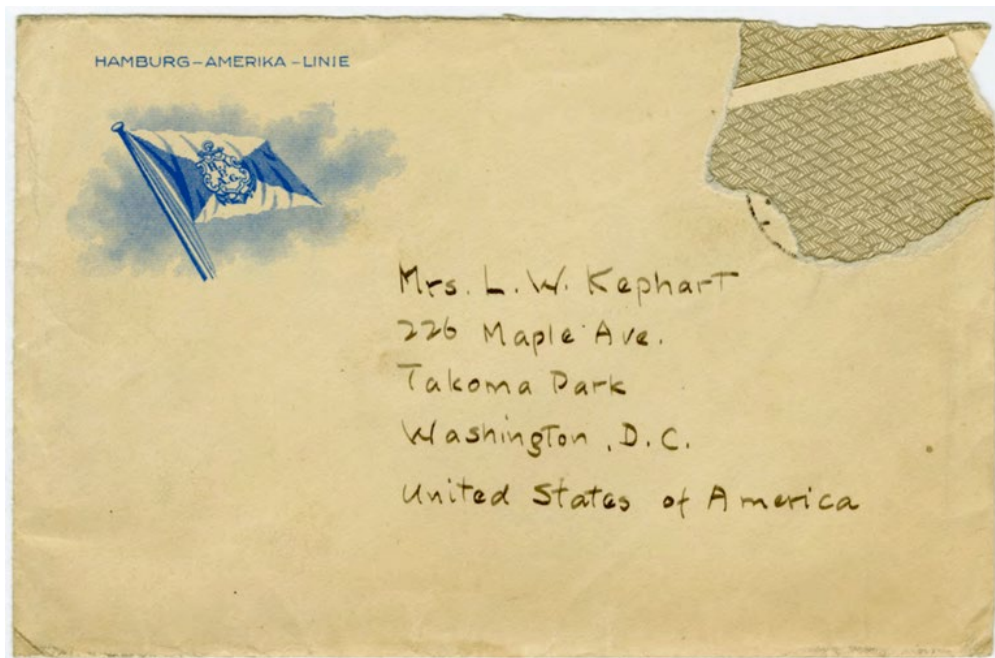 HAMBURG-AMERIKA-LINIE
Mrs. L. W. Kephart
226 Maple Ave.
Takoma Park
Washington, D.C.
United States of America